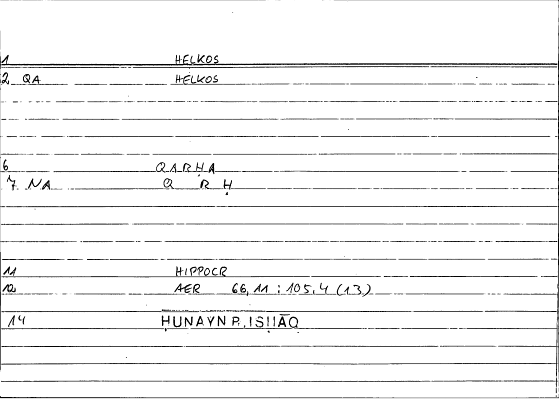 1 HELKOS
2 QA HELKOS
6 QARḤA
7 NA Q R Ḥ
11 HIPPOCR
12 AER 66,11 : 105,4 (13)
14 ḤUNAYN B. ISḤĀQ